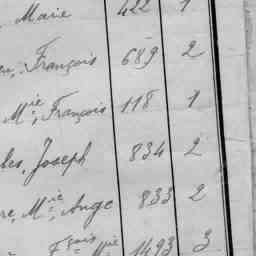 , Marie 422 1
François 689 2
Mie, François 118 1
Joseph 834 2
re, Mie, Ange 833 2
Fçois Mie 1493 3